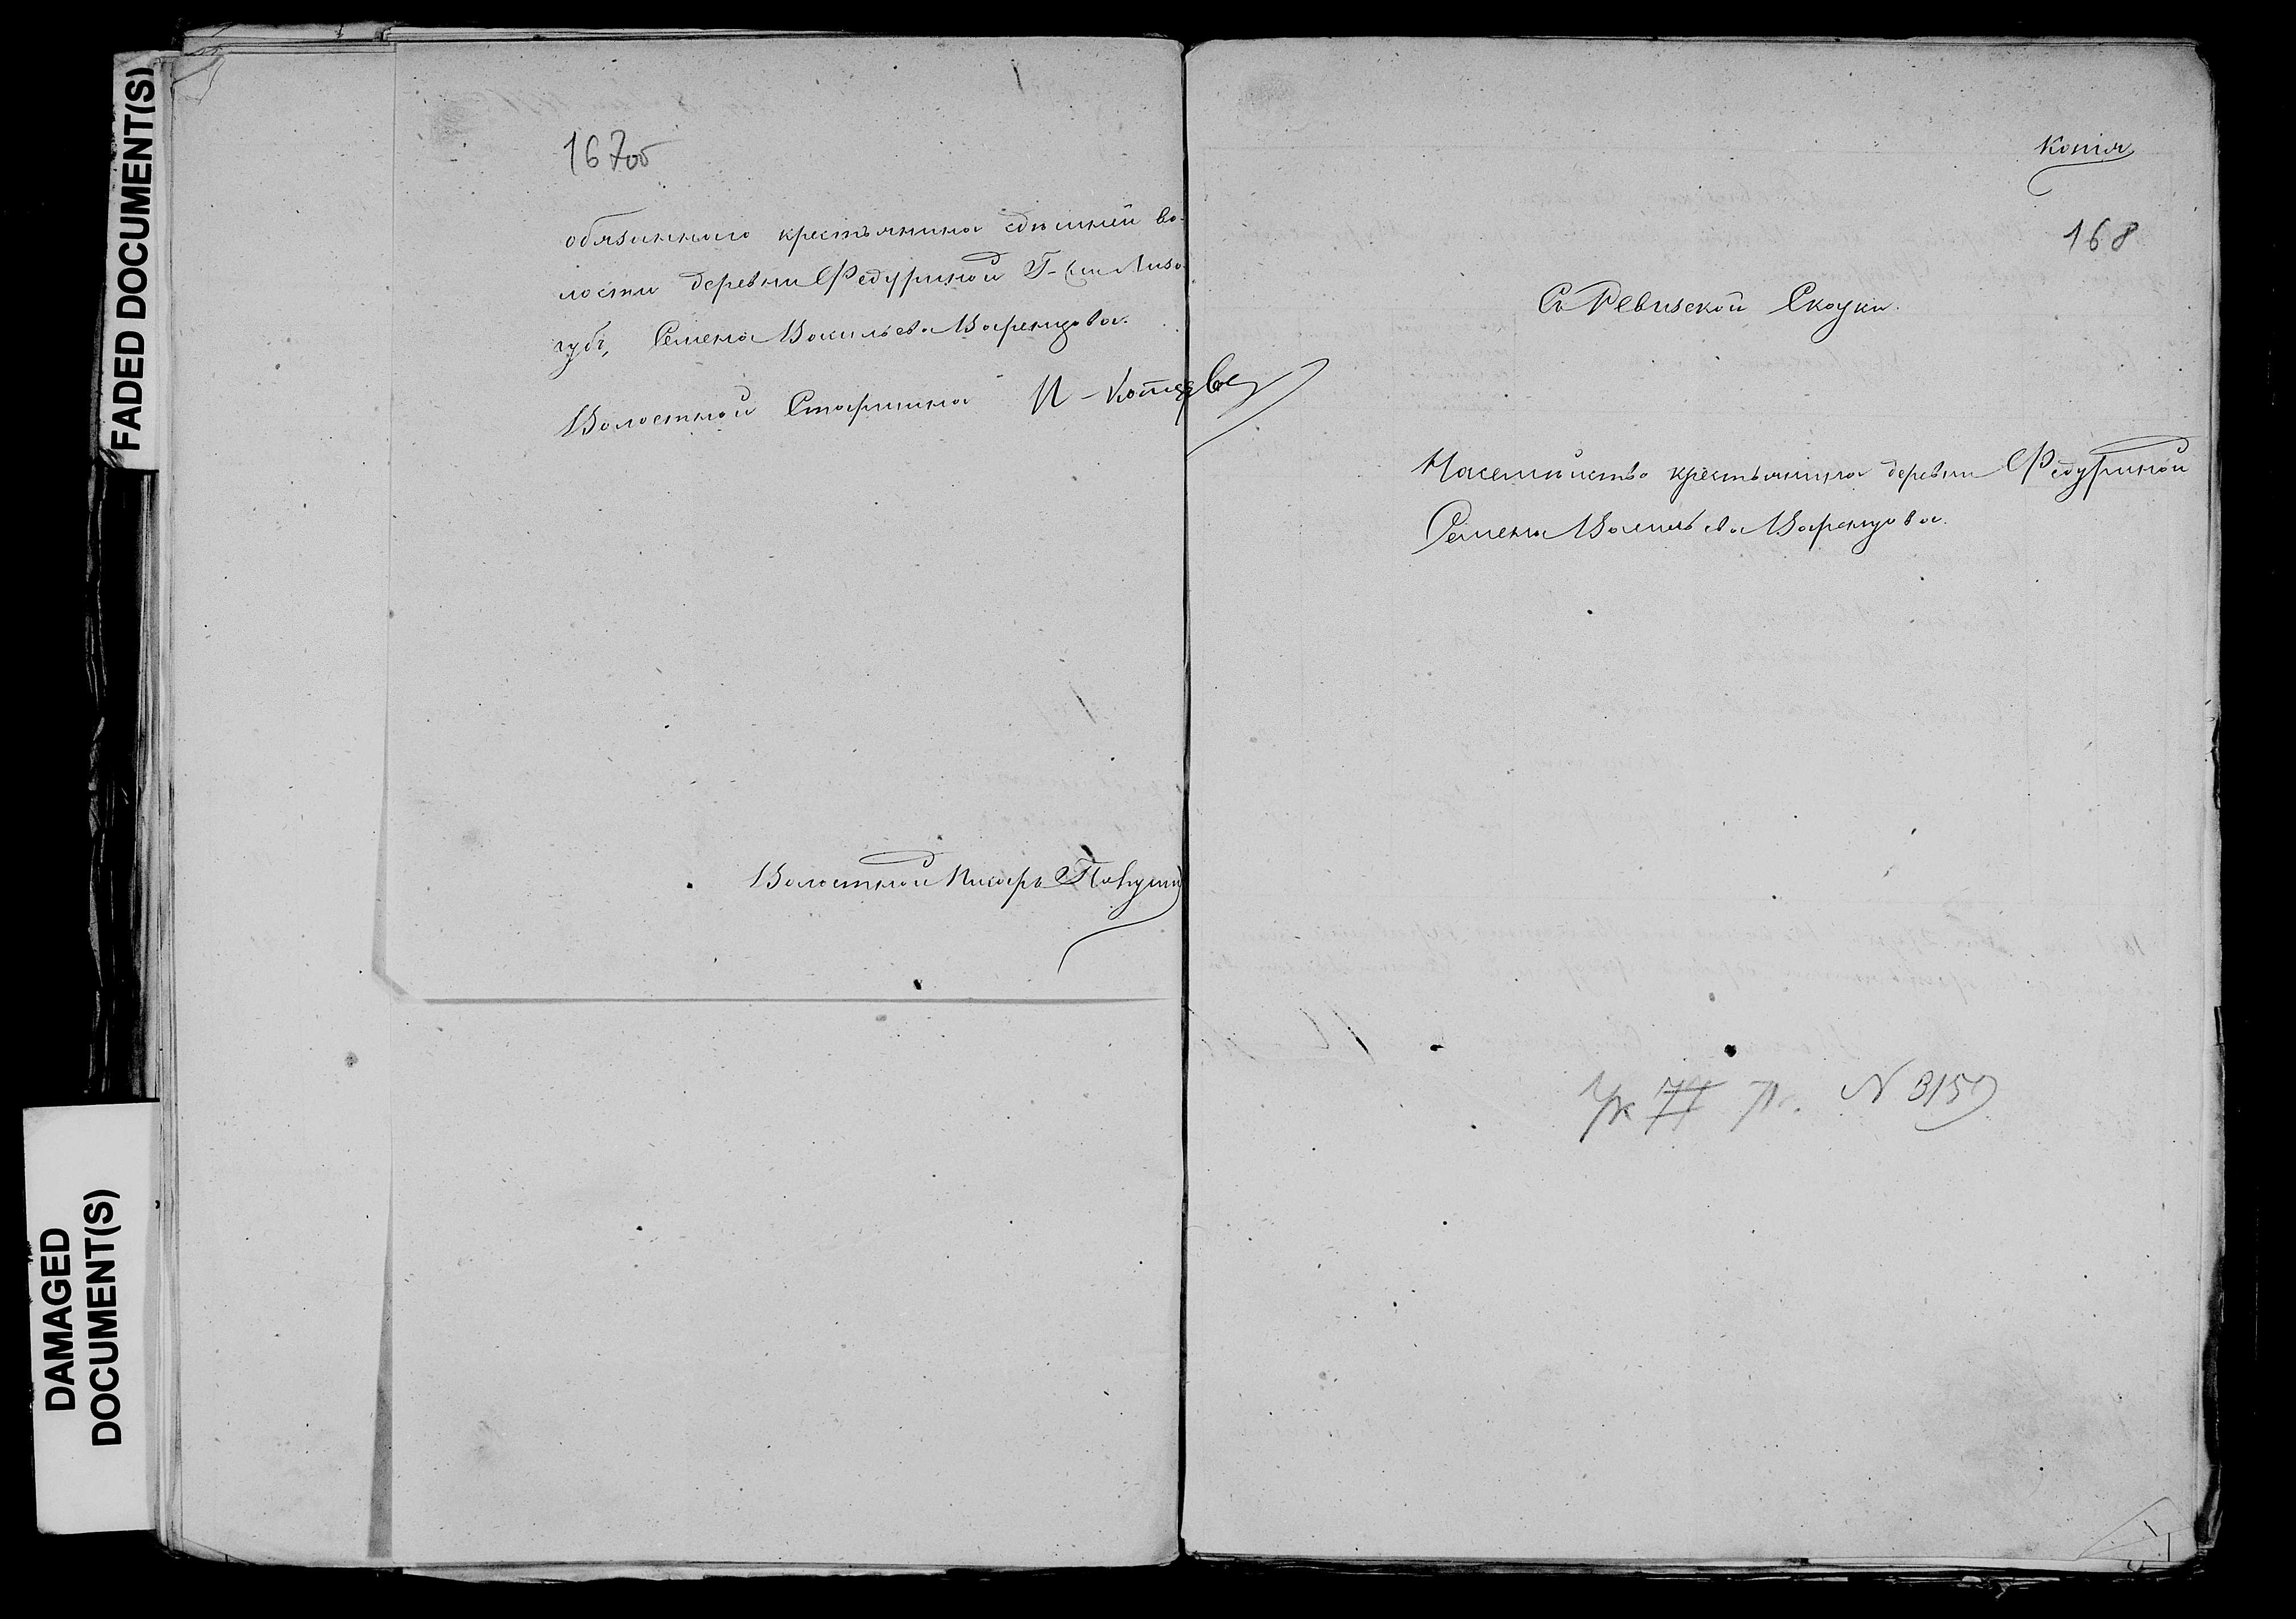 FADED DOCUMENT(S)
DAMAGED
DOCUMENT(S)
167об
обязаннаго крестьянина здѣшней во-
лости деревни Ѳедуриной Г-жи Лизо
губъ, Семена Васильева Варенцова.
Волостной Старшина И-
Волостной Писарь
Копія
168
Съ Ревизской Скаски.
На семѣйство крестьянина деревни Ѳедуриной
Семена Васильева Варенцова.
N 3159